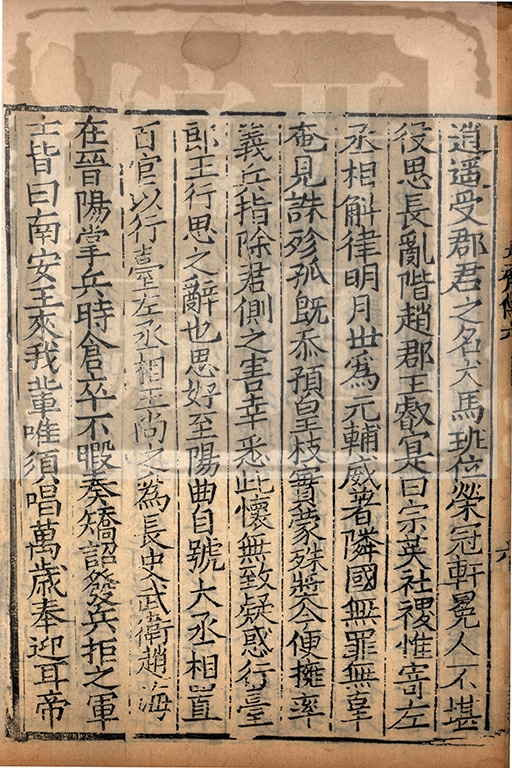 逍遥受郡君之名犬馬班位榮冠軒冕人不堪
役思長亂階趙郡王叡寔曰宗英社稷惟寄左
丞相斛律明月世爲元輔威著隣國無罪無辜
奄見誅殄孤既忝預皇枝實蒙殊奬今便擁率
義兵指除君側之害幸悉此懷無致疑惑行臺
郎王行思之辭也思好至陽曲自號大丞相置
百官以行臺左丞相王尚之爲長史武衛趙海
在晉陽掌兵時倉卒不暇奏矯詔發兵拒之軍
士皆曰南安王來我軰唯須唱萬歲奉迎耳帝